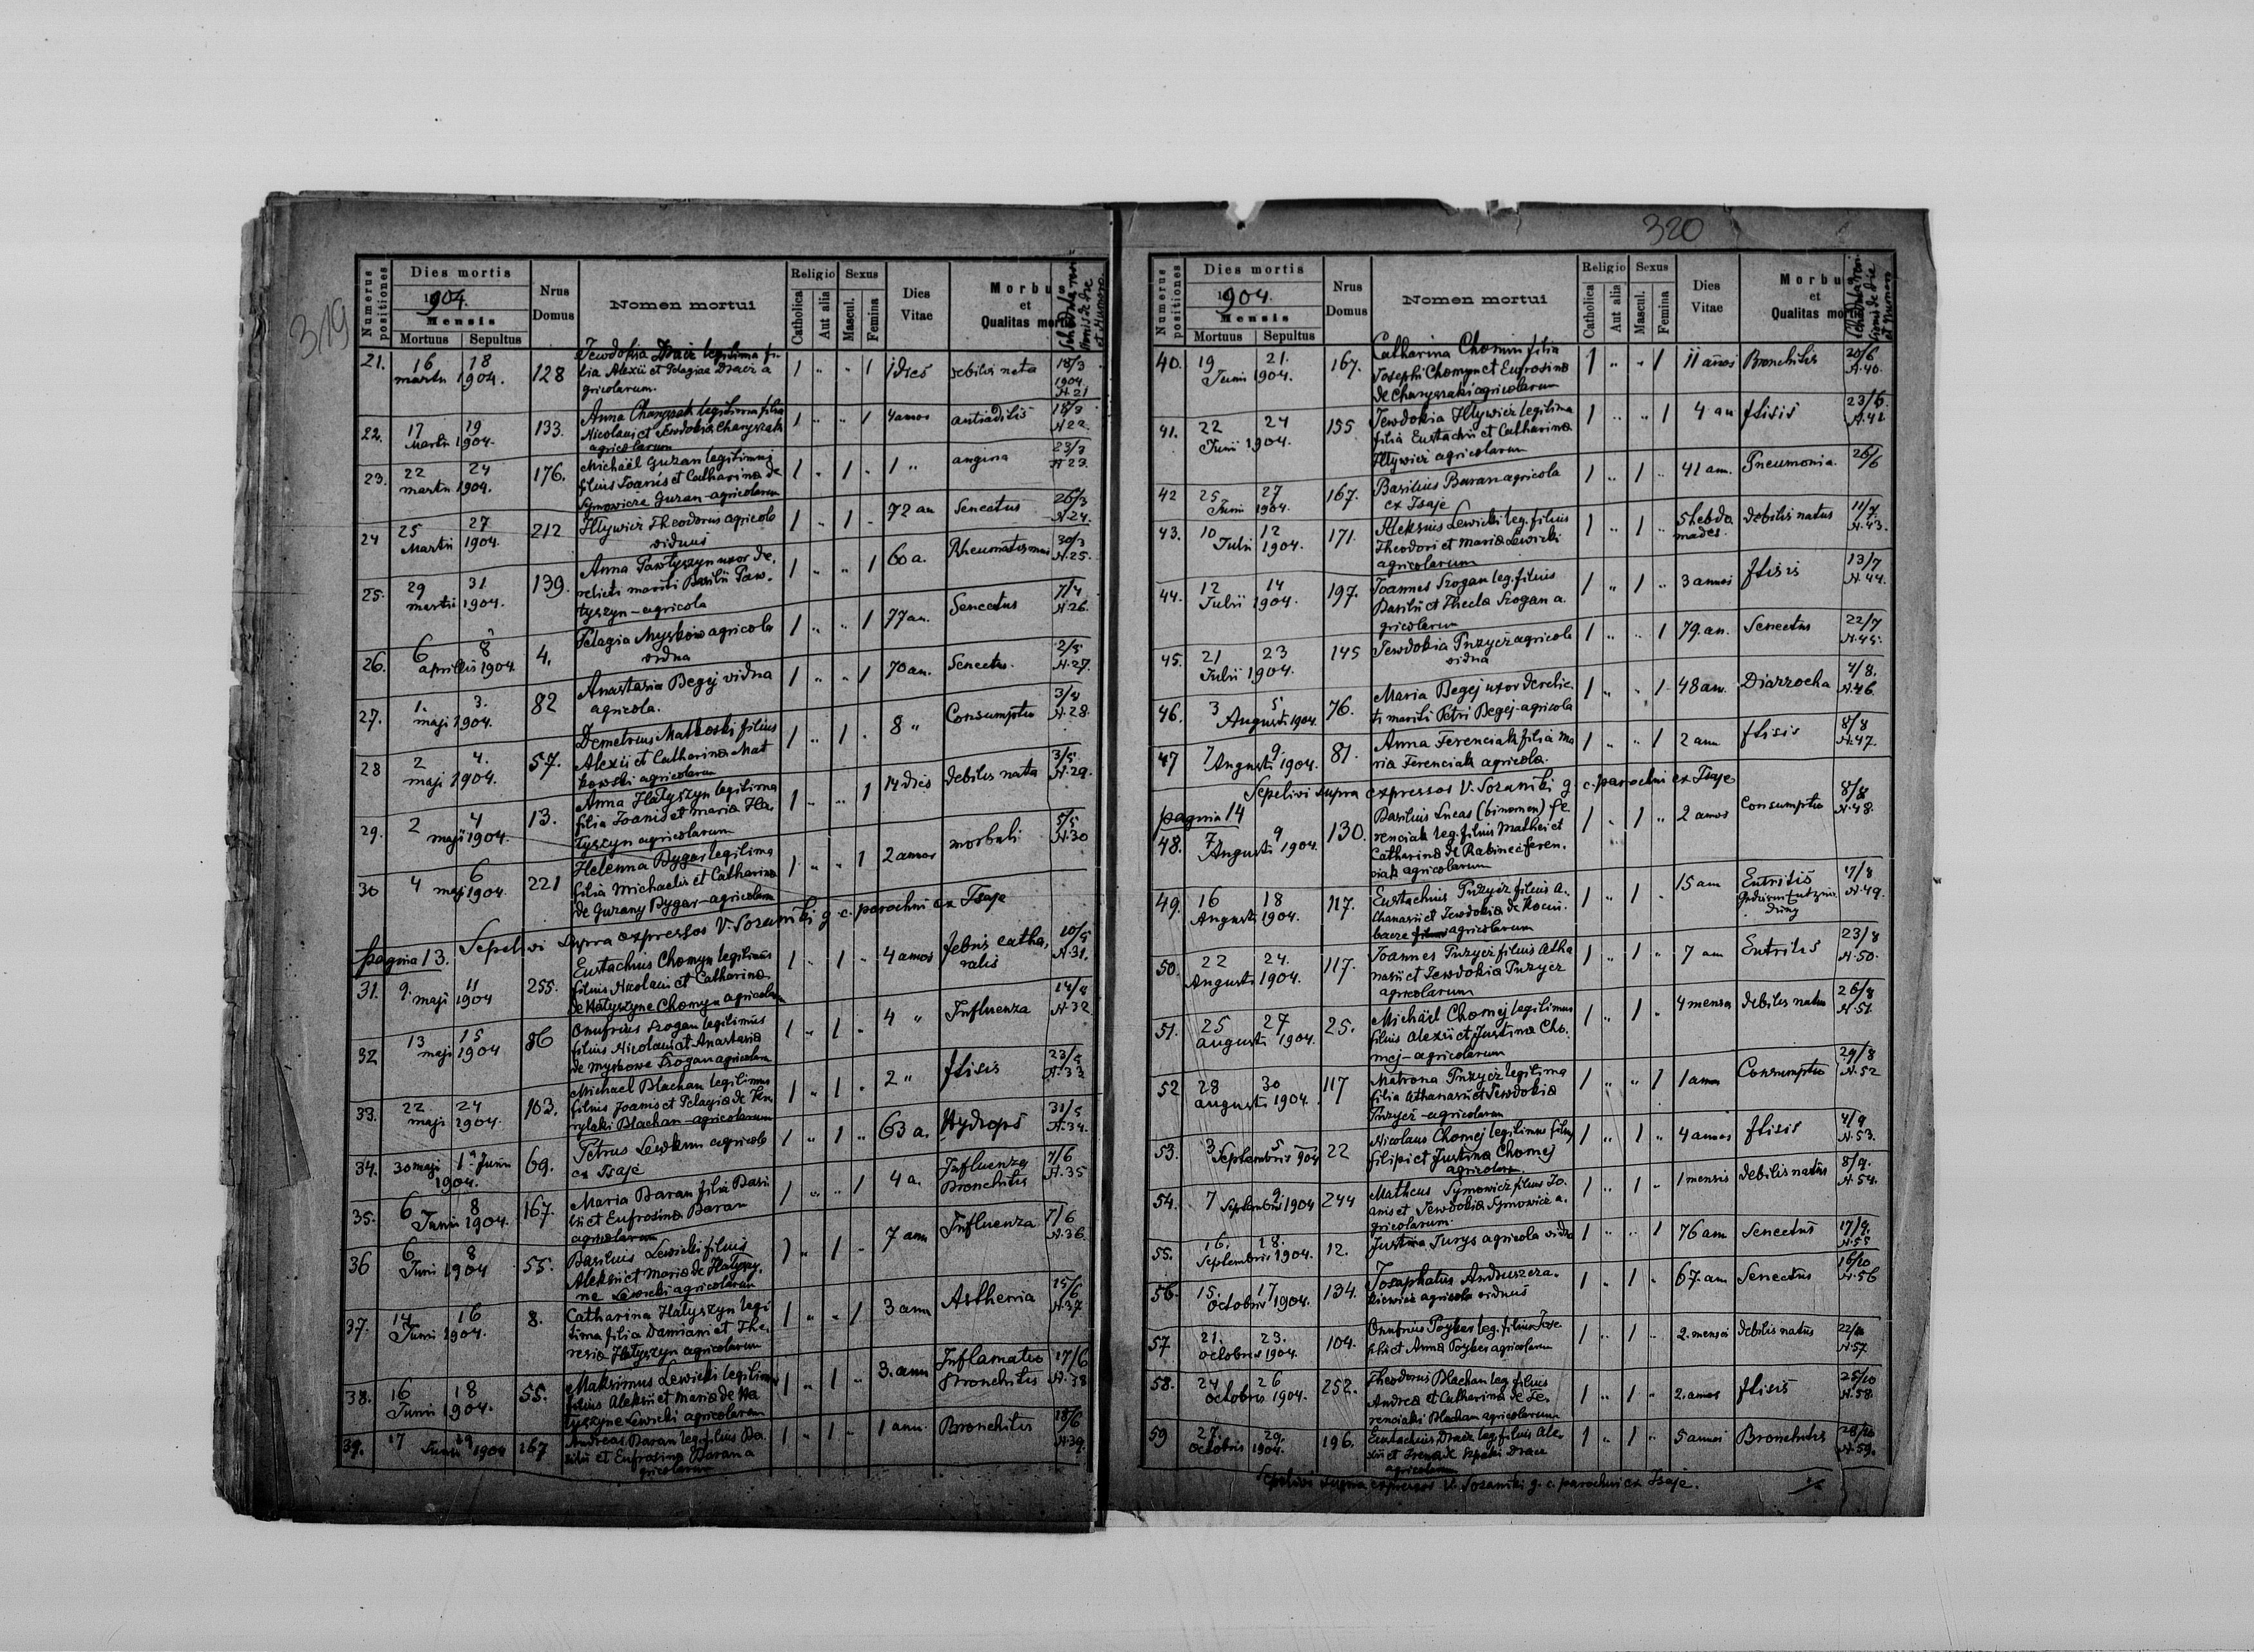 319
Numerus positiones
Dies mortis
1904.
Mensis
Mortuus Sepultus
Nrus Domus
Nomen mortui
Religio
Catholica
Aut alia
Sexus
Mascul.
Femina
Dies Vitae
Morbus
et
Qualitas mortis
21. 16 18 martii 1904. 128 1 " " 1 1 dies debilis nata 18/3 1904. N.21
Tewdokia Dracz legitima fi-
lia Alexii et Pelagiae Dracz a
gricolarum.
22. 17 19 Martii 1904. 133. 1 " " 1 4 annos 18/3 N 22.
Anna Chanyszak legitima filia
Nicolaui et Tewdokia Chanyszak
agricolarum
23. 22 24 martii 1904. 176. 1 " 1 " 1 " angina 23/3 N 23.
Michaël Guzan legitimus
filius Ioanis et Catharina de
Symowicze Guzan - agricolarum
24 25 27 Martii 1904. 212 1 " 1 " 72 an Senectus 26/3 N.24.
Hlywicz Theodorus agricola
viduus
25. 29 31 martii 1904. 139. 1 " " 1 60 a. Rheumatismus 30/3 N.25.
Anna Pawlyszyn uxor de,
relicti mariti Basilii Paw-
lyszyn - agricola
26. 6 8 aprilis 1904 4. 1 " " 1 77 an. Senectus 7/4 N 26.
Pelagia Myskow agricola
vidua
27. 1. 3. maji 1904. 82 1 " " 1 70 an. Senectus. 2/5 N.27.
Anastasia Begej vidua
agricola.
28 2 4. maji 1904. 57. 1 " 1 " 8 " Consumptio N.28.
Demetrius Matkoski filius
Alexii et Catharina Mat
kowski agricolarum
29. 2 4 maji 1904. 13. 1 " " 1 14 dies debilis nata 3/5 N.29.
Anna Halyszyn legitima
filia Ioanis et maria Ha-
lyszyn agricolarum
30 4 6 maji 1904. 221 1 " " 1 2 annos morbuli 5/5 N.30
Helenna Bygar legitima
filia Michaelis et Catharina
de Guzany Bygar - agricolarum
pagina 13. Sepelivi supra expressos V. Sozanski g. c. parochni ex Isaje
31. 9. 11 maji 1904 255. 1 " 1 " 4 annos febris catha,
ralis 10/5 N.31.
Eustachius Chomyn legitimus
filius Nicolaui et Catharina
de Halyszyne Chomyn agricolarum
32 13 15 maji 1904 86 1 " 1 " 4 " Influenza N.32
Onufrius Szogan legitimus
filius Nicolaui et Anastasia
de myskowe Szogan agricolarum
33. 22 24 maji 1904. 103. 1 " 1 " 2 " ftisis 23/5 N.33
Michael Blachan legitimus
filius Joanis et Pelagia de
Blachan - agricolarum
34. 30 maji 1. Junii 1904. 69. 1 " 1 " 63 a. Hydrops 31/5 N.34.
Petrus Lewkun agricola
ex Isaje
35. 6 8 Junii 1904. 167. 1 " " 1 4 a. Influenza
Bronchitis 7/6 N.35
Maria Baran filia Basi
lii et Eufrosina Baran
agricolarum
36 6 8 Junii 1904 55. 1 " 1 " 7 ann Influenza 7/6 N.36.
Basilius Lewicki filius
Aleksii et Maria de Halyszy,
ne Lewicki agricolarum
37. 14 16 Junii 1904. 8. 1 " " 1 3 ann Asthenia 15/6 N.37
Catharina Halyszyn legi
tima filia Damiani et The,
resia Halyszyn agricolarum
38. 16 18 Junii 1904. 55. 1 " 1 " 3. ann Inflamatio
Bronchitis 17/6 N.38
Maksimus Lewicki legitimus
filius Aleksii et Maria de Ha
lyszyne Lewicki agricolarum
39. 17 19 Junii 1904 167 1 " 1 " 1 ann. Bronchitis 18/6 N.39.
Andreas Baran leg. filius Ba
silii et Eufrosina Baran a
gricolarum
320
Numerus positiones
Dies mortis
1904.
Mensis
Mortuus Sepultus
Nrus Domus
Nomen mortui
Religio
Catholica
Aut alia
Sexus
Mascul.
Femina
Dies Vitae
Morbus
et
Qualitas mortis
40. 19 21. Junii 1904. 167. 1 " " 1 11 años Bronchitis 20/6 N.40.
Catharina Chomin filia
Josephi Chomyn et Eufrosina
de Chanyszaki agricolarum
41. 22 24 Junii 1904. 155 1 " " 1 4 an ftisis 23/6. N.41
Tewdokia Hlywicz legitima
filia Eustachii et Catharina
Hlywicz agricolarum
42 25 27 Junii 1904. 167. 1 " 1 " 41 ann. Pneumonia. 26/6
Basilius Baran agricola
ex Isaje
43. 10 12 Julii 1904. 171. 1 " 1 " 5 hebdo
mades. debilis natus 11/7. N.43.
Aleksius Lewicki leg. filius
Theodori et Maria Lewicki
agricolarum
44. 12 14 Julii 1904. 197. 1 " 1 " 3 annos ftisis 13/7 N.44.
Joannes Szogan leg. filius
Basilii et Thecla Szogan a.
gricolarum
45. 21 23 Julii 1904. 145 1 " " 1 79. an. Senectus 22/7 N.45.
Tewdokia Puzycz agricola
vidua
46. 3 5 Augusti 1904. 76. 1 " " 1 48 ann. Diarrocha 4/8. N.46.
Maria Begej uxor derelic.
ti mariti Petri Begej - agricola
47 7 9. Augusti 1904. 81. 1 " " 1 2 ann ftisis 8/8 N.47.
Anna Ferenciak filia Ma
ria Ferenciak agricola.
Sepelivi supra expressos V. Sozanski g. c. parochni ex Isaje
pagina 14
48. 7 9 Augusti 1904. 130. 1 " 1 " 2 annos Consumptio 8/8 N.48.
Basilius Lucas (binomen) fe.
renciak leg. filius Mathei et
Catharina de Rabinec feren.
ciak agricolarum
49. 16 18 Augusti 1904. 117. 1 " 1 " 15 ann Entritis N.49.
Eustachius Puzycz filius A.
thanasii et Tewdokia de
agricolarum
50. 22 24. Augusti 1904. 117. 1 " 1 " 7 ann Entritis 23/8 N.50.
Joannes Puzycz filius Atha
nasii et Tewdokia Puzycz
agricolarum
51. 25 27 augusti 1904. 25. 1 " 1 " 4 mensa debilis natus 26/8 N.51
Michäel Chomej legitimus
filius Alexii et Justina Cho.
mej - agricolarum
52 28 30 augusti 1904. 117 1 " " 1 1 annos Consumptio 29/8 N.52
Matrona Puzycz legitima
filia Athanasii et Tewdokia
Puzycz - agricolarum
53. 3 5 Septembris 1904 22 1 " 1 " 4 annos ftisis 4/9 N.53.
Nicolaus Chomej legitimus filius
filipi et Justina Chomej
agricolarum.
54. 7 9. Septembris 1904 244 1 " 1 " 1 mensis debilis natus 8/9. N.54.
Matheus Symowicz filius Jo.
anis et Tewdokia Symowicz a.
gricolarum.
55. 16. 18. Septembris 1904. 12. 1 " " 1 76 ann Senectus 17/9. N.55
Justina Jurys agricola vidua
56. 15. 17 Octobris 1904. 134. 1 " 1 " 67. ann Senectus 16/10 N.56
Jozaphatus Andruszcza.
kiewicz agricola viduus
57 21. 23. octobris 1904. 104. 1 " " 2. menses debilis natus 22/10 N.57.
Onufrius Poykes leg. filius Jose
phi et Anna Poykes agricolarum
58. 24 26 octobris 1904. 252. 1 " 1 " 2. annos ftisis 25/10 N.58.
Theodorus Blachan leg. filius
Andrea et Catharina de Fe.
renciaki Blachan agricolarum
59 27. 29. octobris 1904. 196. 1 " 1 " 5 annos Bronchitis 28/10 N.59.
Eustachius Dracz leg. filius Ale.
xii et Irena de Szpaki Dracz
agricolarum
Sepelivi supra expressos V. Sozanski g. c. parochni ex Isaje.